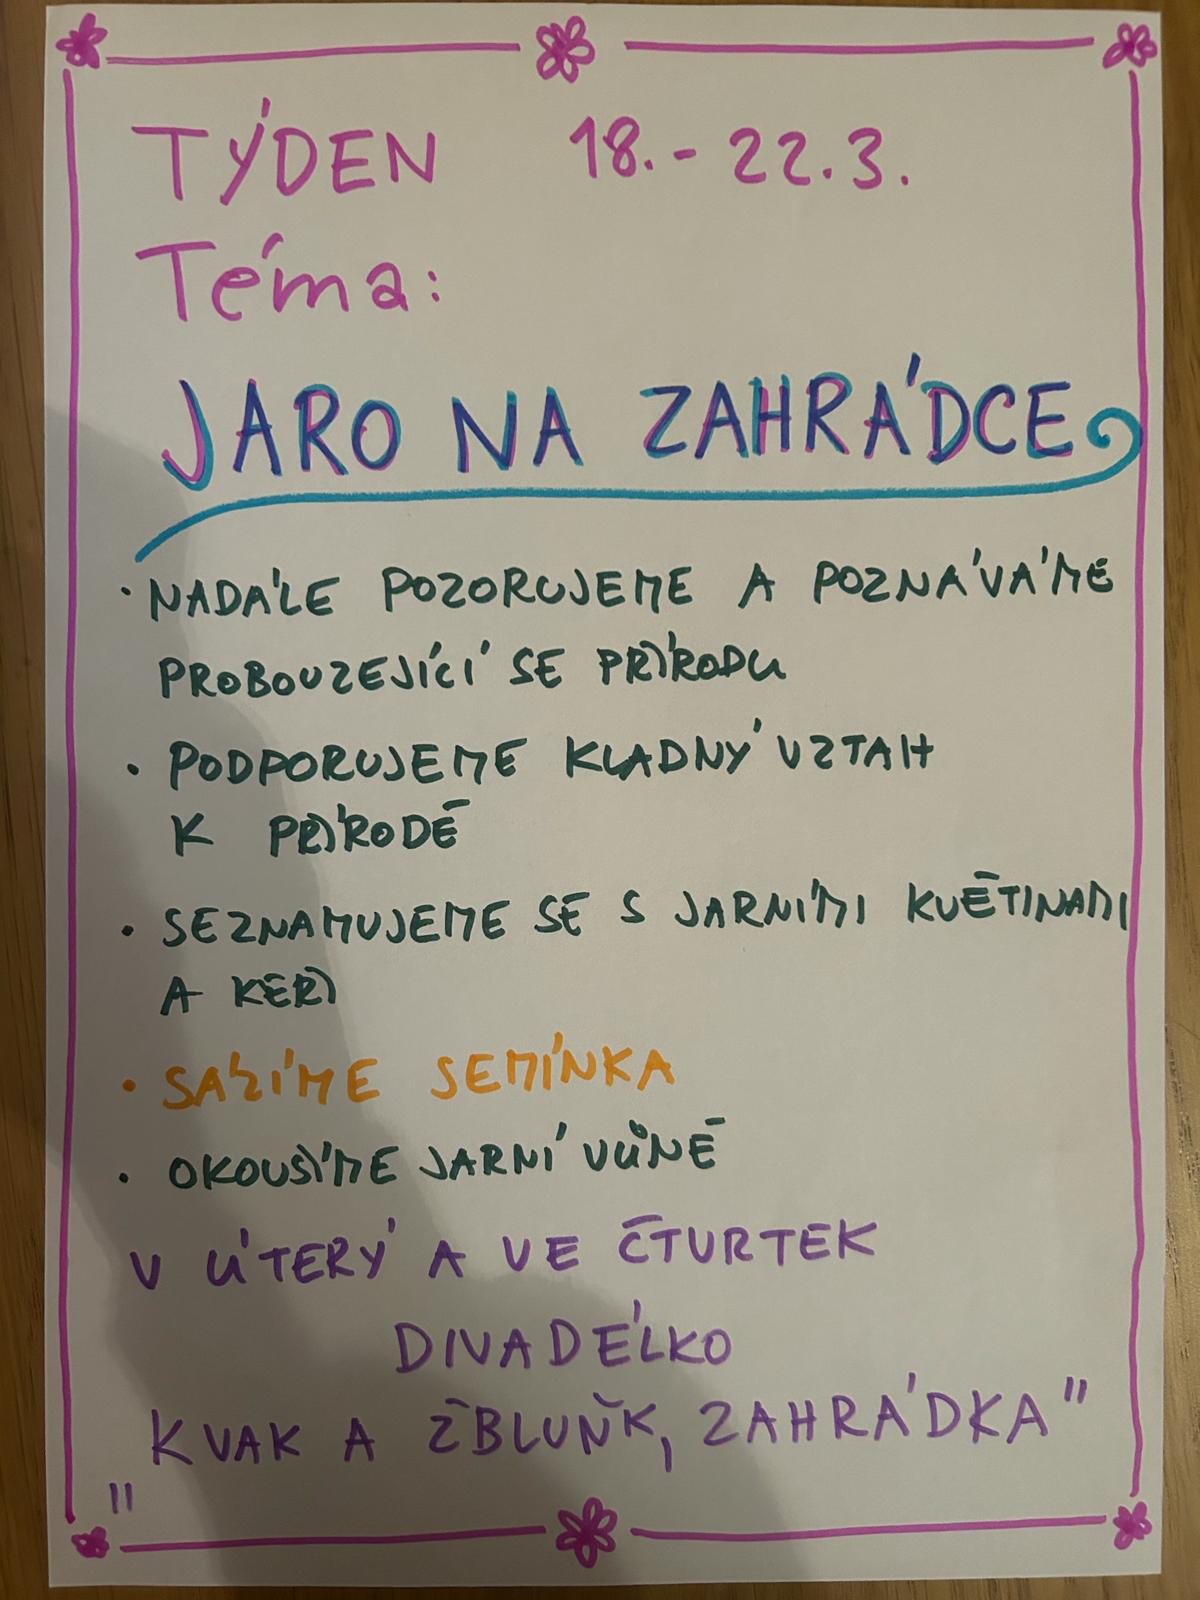 TÝDEN 18.-22.3.
Téma:
JARO NA ZAHRÁDCE
• NADÁLE POZORUJEME A POZNÁVÁME
PROBOUZEJÍCÍ SE PŘÍRODU
• PODPORUJEME KLADNÝ VZTAH
K PŘÍRODĚ
• SEZNAMUJEME SE S JARNÍMI KVĚTINAMI
A KEŘI
• SÁZÍME SEMÍNKA
• OKOUSÍME JARNÍ VŮNĚ
V ÚTERÝ A VE ČTVRTEK
DIVADÉLKO
„KVAK A ŽBLUŇK, ZAHRÁDKA"